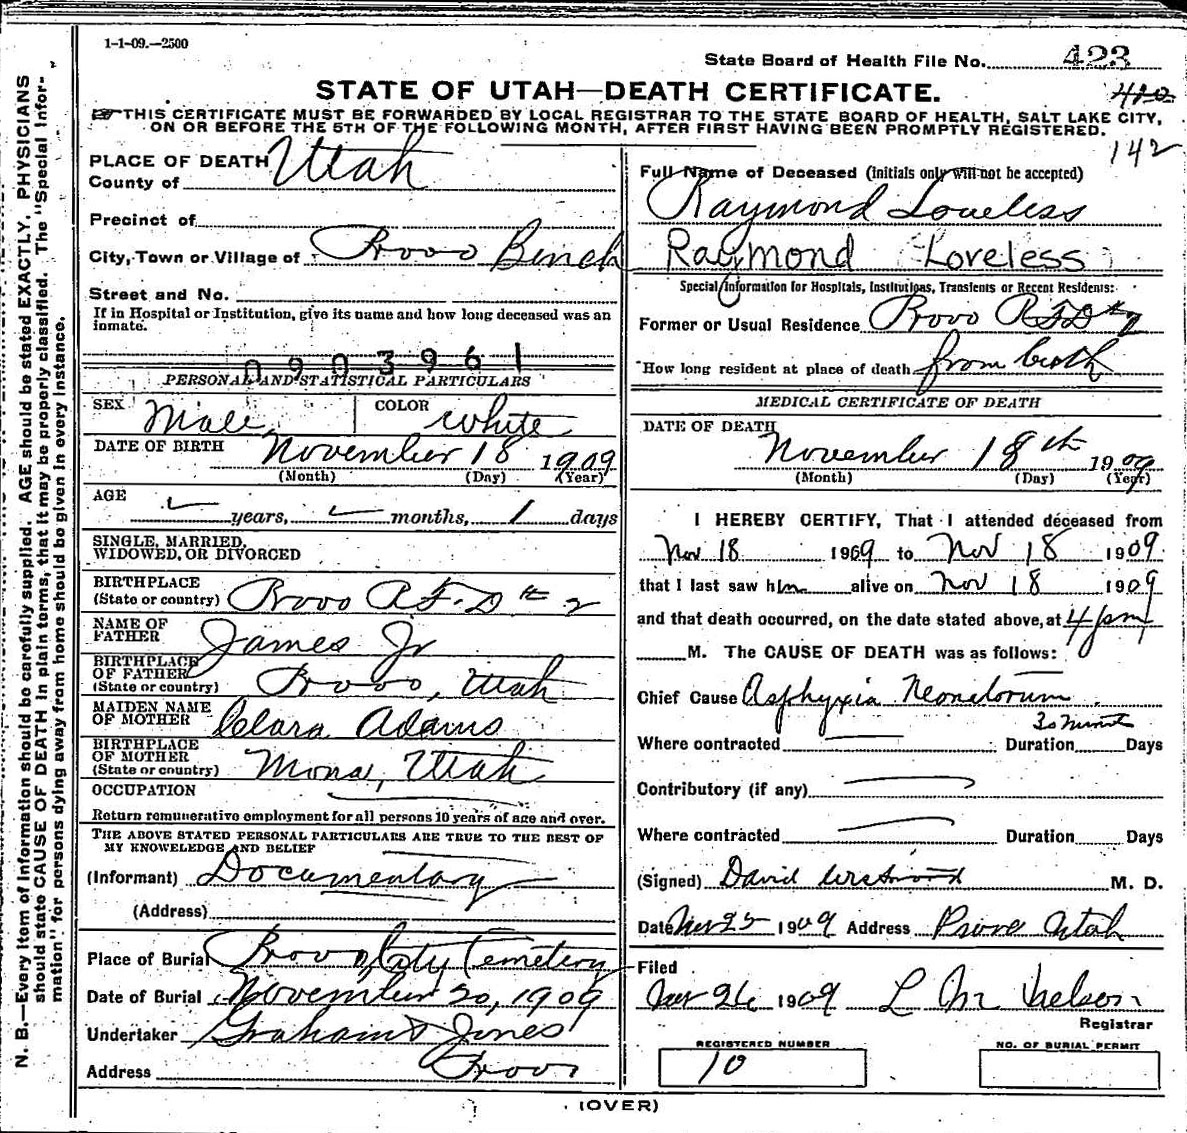 1-1-09.—2500
State Board of Health File No. 423
STATE OF UTAH—DEATH CERTIFICATE.
420
THIS CERTIFICATE MUST BE FORWARDED BY LOCAL REGISTRAR TO THE STATE BOARD OF HEALTH, SALT LAKE CITY,
ON OR BEFORE THE 5TH OF THE FOLLOWING MONTH, AFTER FIRST HAVING BEEN PROMPTLY REGISTERED.
142
N. B.—Every item of information should be carefully supplied. AGE should be stated EXACTLY. PHYSICIANS
should state CAUSE OF DEATH in plain terms, that it may be properly classified. The "Special Infor-
mation" for persons dying away from home should be given in every instance.
PLACE OF DEATH
County of Utah
Precinct of
City, Town or Village of Provo Bench
Street and No.
If in Hospital or Institution, give its name and how long deceased was an
inmate.
0903961
PERSONAL AND STATISTICAL PARTICULARS
SEX Male COLOR White
DATE OF BIRTH November 18 1909
(Month) (Day) (Year)
AGE
years, months, 1 days
SINGLE, MARRIED,
WIDOWED, OR DIVORCED
BIRTHPLACE
(State or country) Provo R.F.D # 2
NAME OF
FATHER James Jr
BIRTHPLACE
OF FATHER
(State or country) Provo, Utah
MAIDEN NAME
OF MOTHER Clara Adams
BIRTHPLACE
OF MOTHER
(State or country) Mona, Utah
OCCUPATION
Return remunerative employment for all persons 10 years of age and over.
THE ABOVE STATED PERSONAL PARTICULARS ARE TRUE TO THE BEST OF
MY KNOWELEDGE AND BELIEF
(Informant) Documentary
(Address)
Place of Burial Provo City Cemetery
Date of Burial November 20, 1909
Undertaker Graham & Jones
Address Provo
Full Name of Deceased (Initials only will not be accepted)
Raymond Loveless
Raymond Loveless
Special Information for Hospitals, Institutions, Transients or Recent Residents:
Former or Usual Residence Provo RFD # 2
How long resident at place of death from birth
MEDICAL CERTIFICATE OF DEATH
DATE OF DEATH
November 18th 1909
(Month) (Day) (Year)
I HEREBY CERTIFY, That I attended deceased from
Nov 18 1909 to Nov 18 1909
that I last saw him alive on Nov 18 1909
and that death occurred, on the date stated above, at 4 pm
M. The CAUSE OF DEATH was as follows:
Chief Cause Asphyxia Neonatorum
30 minute
Where contracted Duration Days
Contributory (if any)
Where contracted Duration Days
(Signed) David Westwood M. D.
Date Nov 25 1909 Address Provo Utah
Filed
Nov 26 1909 L M Nelson
Registrar
REGISTERED NUMBER
10
NO. OF BURIAL PERMIT
(OVER)